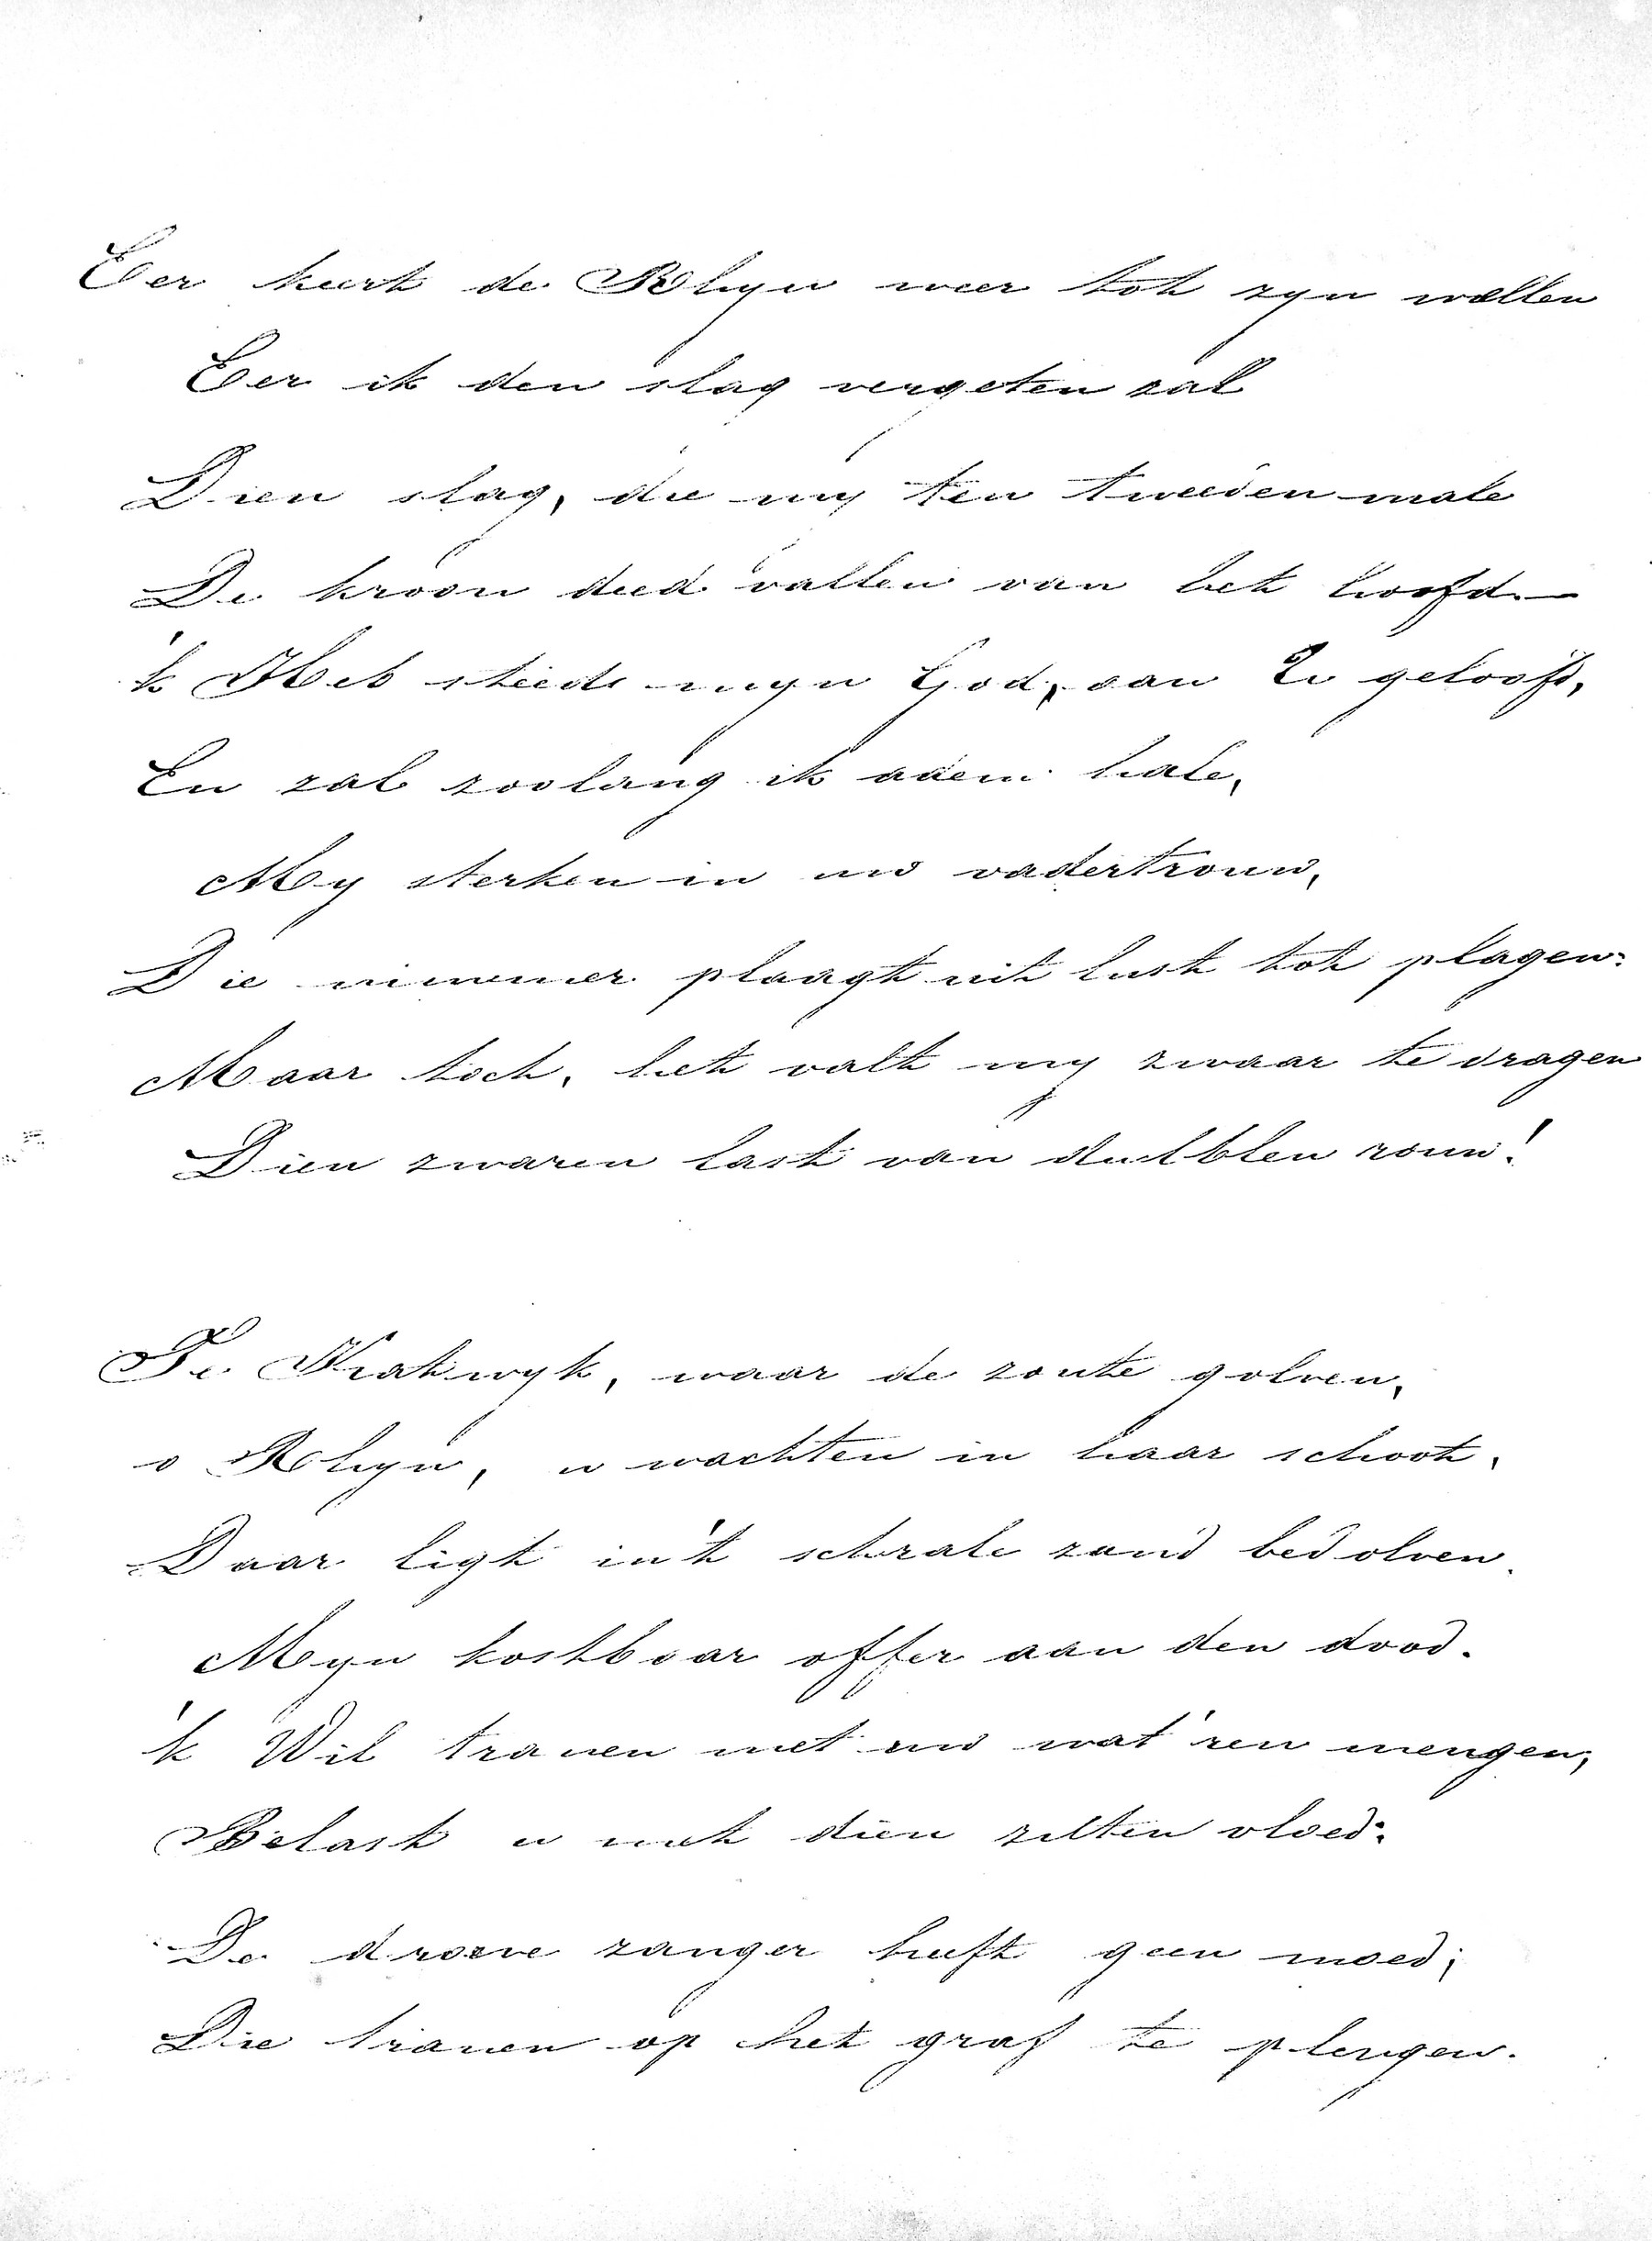 Eer keert de Rhyn weer tot zyn wellen
Eer ik den slag vergeten zal
Dien slag, die my ten tweeden male
De kroon deed vallen van het hoofd. —
'k Heb steeds myn God, aan U geloofd,
En zal zoolang ik adem hale,
My sterken in uw vadertrouw,
Die nimmer plaagt uit lust tot plagen:
Maar toch, het valt my zwaar te dragen
Dien zwaren last van dubblen rouw!
Te Katwyk, waar de zoute golven,
o Rhyn, u wachten in haar schoot,
Daar ligt in't schrale zand bedolven.
Myn kostbaar offer aan den dood.
'k Wil tranen met uw wat'ren mengen,
Belast u met dien zilten vloed:
De droeve zanger heeft geen moed;
Die tranen op het graf te plengen.